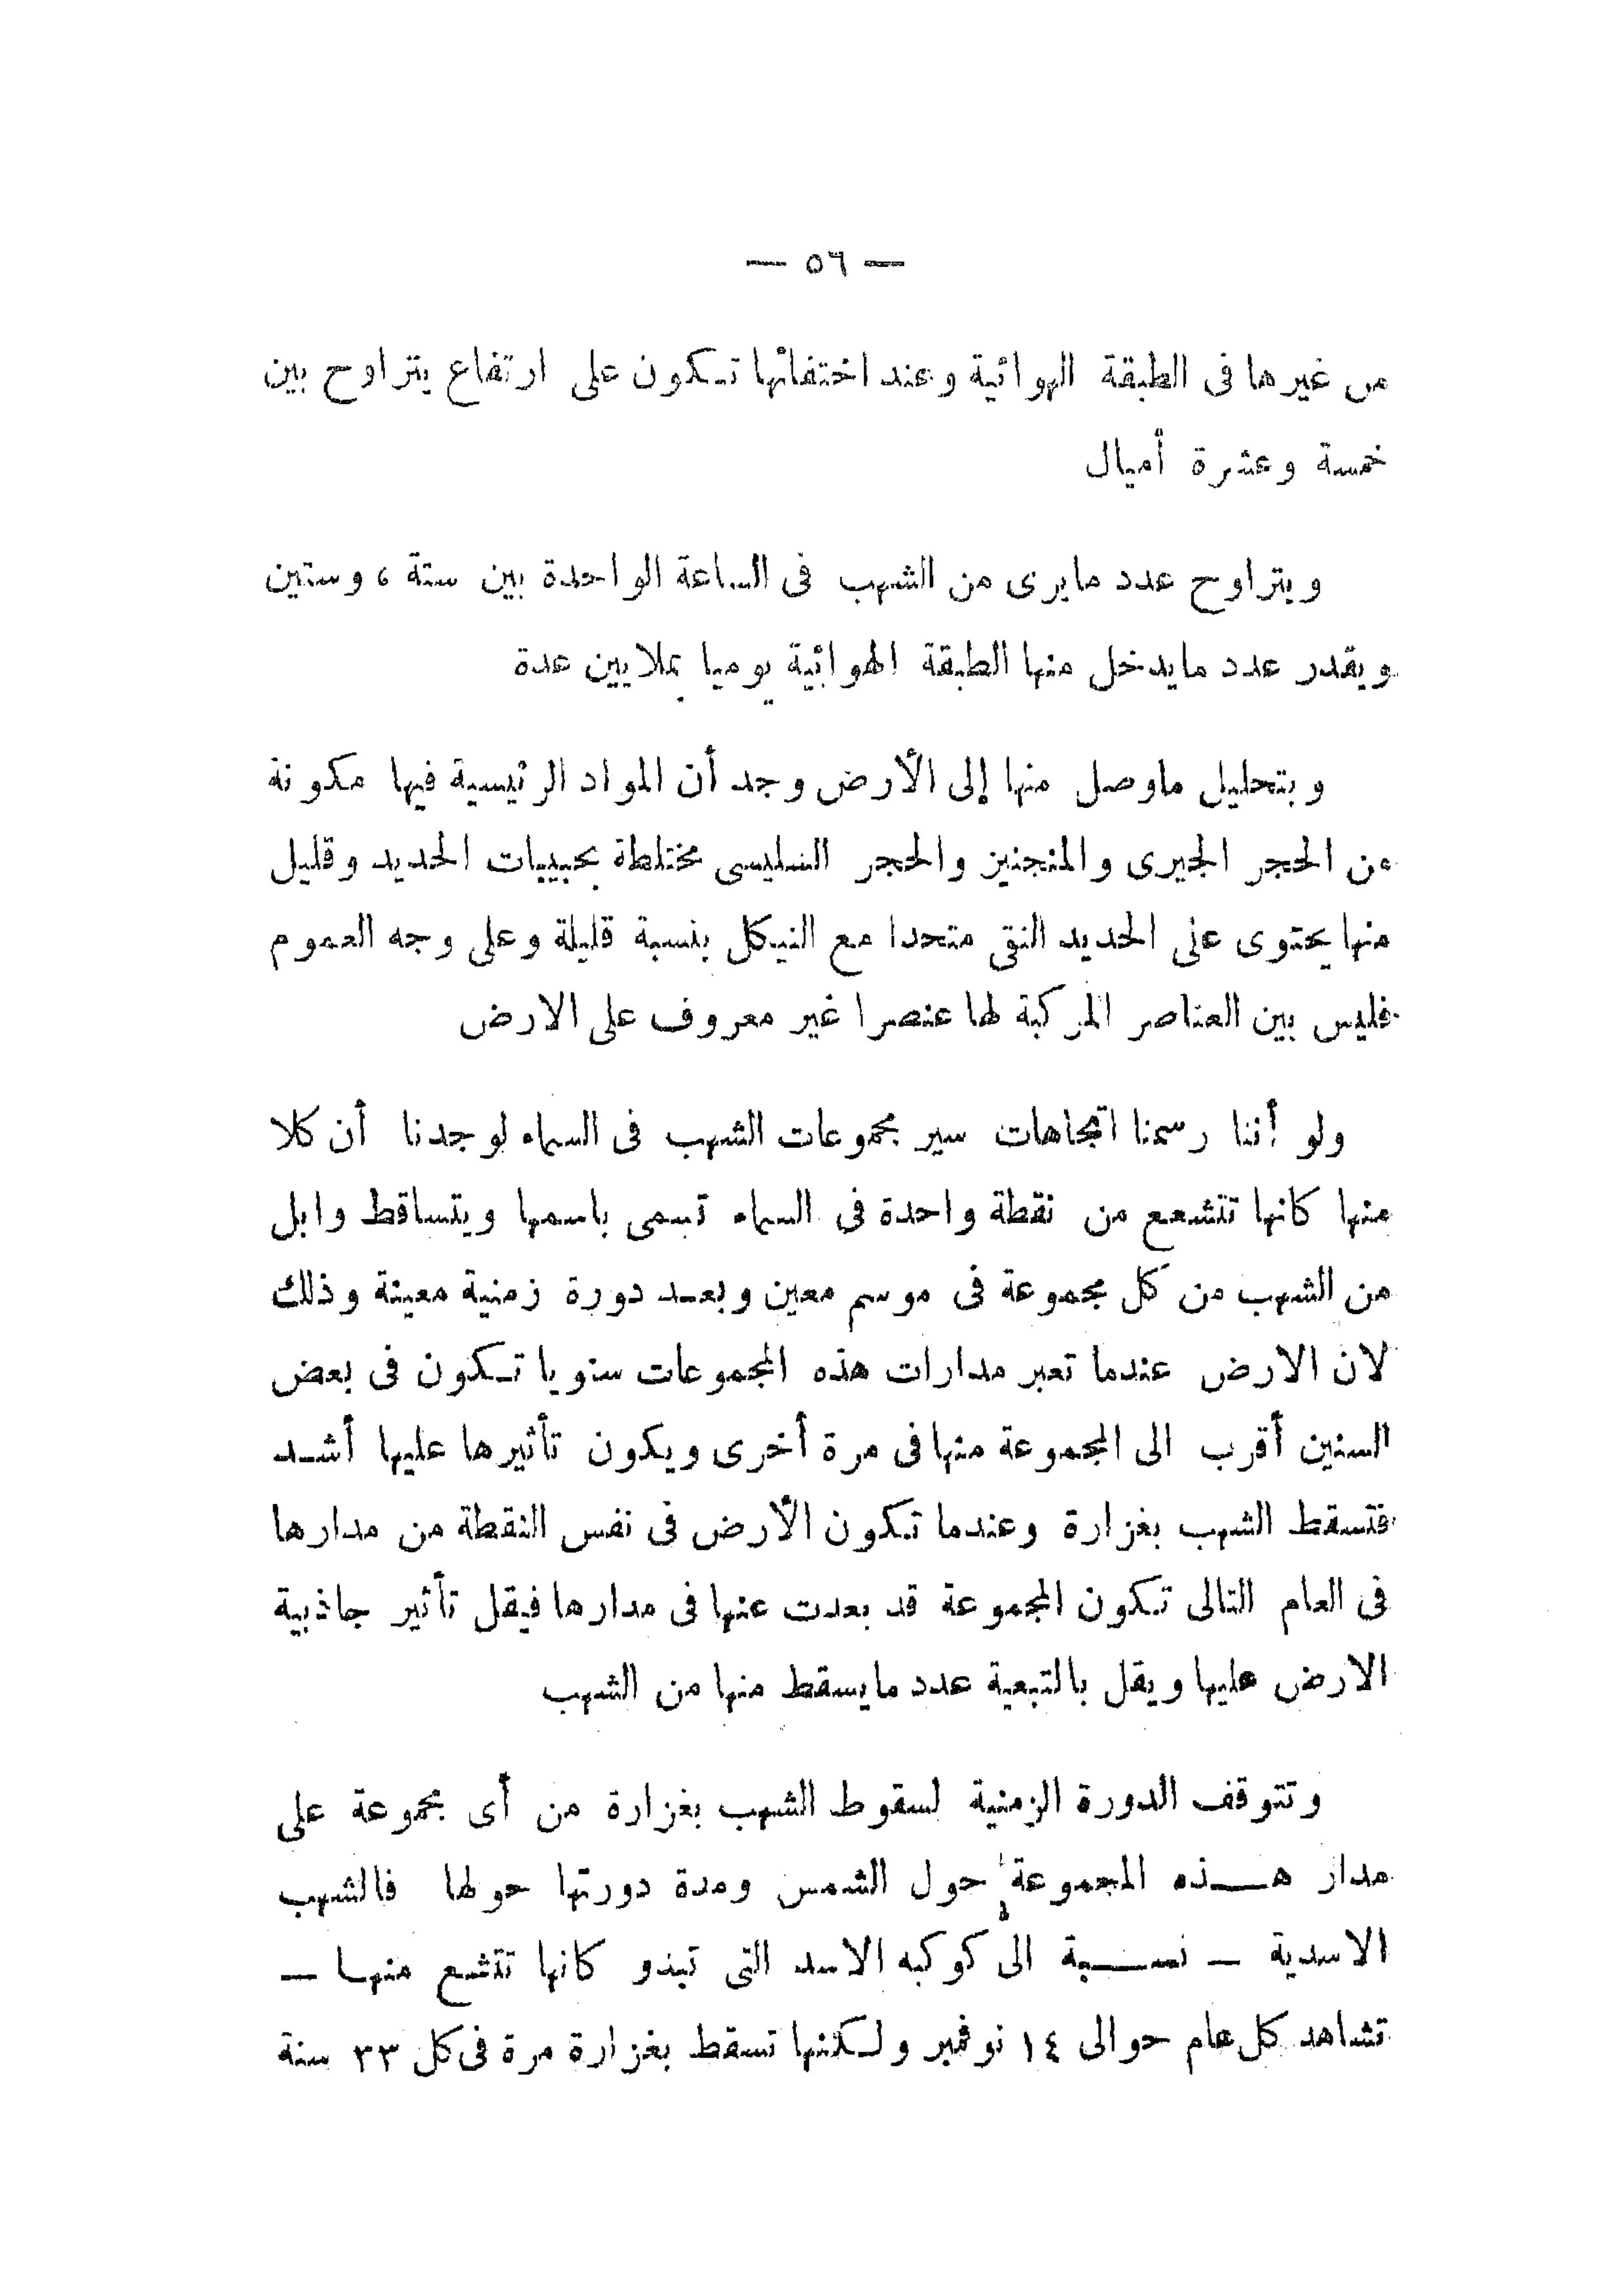 — ٥٦ —
من غيرها فى الطبقة الهوائية وعند اختفائها تكون على ارتفاع يتراوح بين
خمسة وعشرة أميال
ويتراوح عدد مايرى من الشهب فى الساعة الواحدة بين ستة ، وستين
ويقدر عدد مايدخل منها الطبقة الهوائية يوميا بملايين عدة
وبتحليل ماوصل منها إلى الأرض وجد أن المواد الرئيسية فيها مكونة
من الحجر الجيرى والمنجنيز والحجر السليسى مختلطة بحبيبات الحديد وقليل
منها يحتوى على الحديد النقى متحدا مع النيكل بنسبة قليلة وعلى وجه العموم
فليس بين العناصر المركبة لها عنصرا غير معروف على الارض
ولو أننا رسمنا اتجاهات سير مجموعات الشهب فى السماء لوجدنا أن كلا
منها كانها تتشعع من نقطة واحدة فى السماء تسمى باسمها ويتساقط وابل
من الشهب من كل مجموعة فى موسم معين وبعد دورة زمنية معينة وذلك
لان الارض عندما تعبر مدارات هذه المجموعات سنويا تكون فى بعض
السنين أقرب الى المجموعة منها فى مرة أخرى ويكون تأثيرها عليها أشد
فتسقط الشهب بغزارة وعندما تكون الأرض فى نفس النقطة من مدارها
فى العام التالى تكون المجموعة قد بعدت عنها فى مدارها فيقل تأثير جاذبية
الارض عليها ويقل بالتبعية عدد مايسقط منها من الشهب
وتتوقف الدورة الزمنية لسقوط الشهب بغزارة من أى مجموعة على
مدار هذه المجموعة حول الشمس ومدة دورتها حولها فالشهب
الاسدية — نسبة الى كوكبه الاسد التى تبدو كانها تتشع منها —
تشاهد كل عام حوالى ١٤ نوفمبر ولكنها تسقط بغزارة مرة فى كل ٣٣ سنة